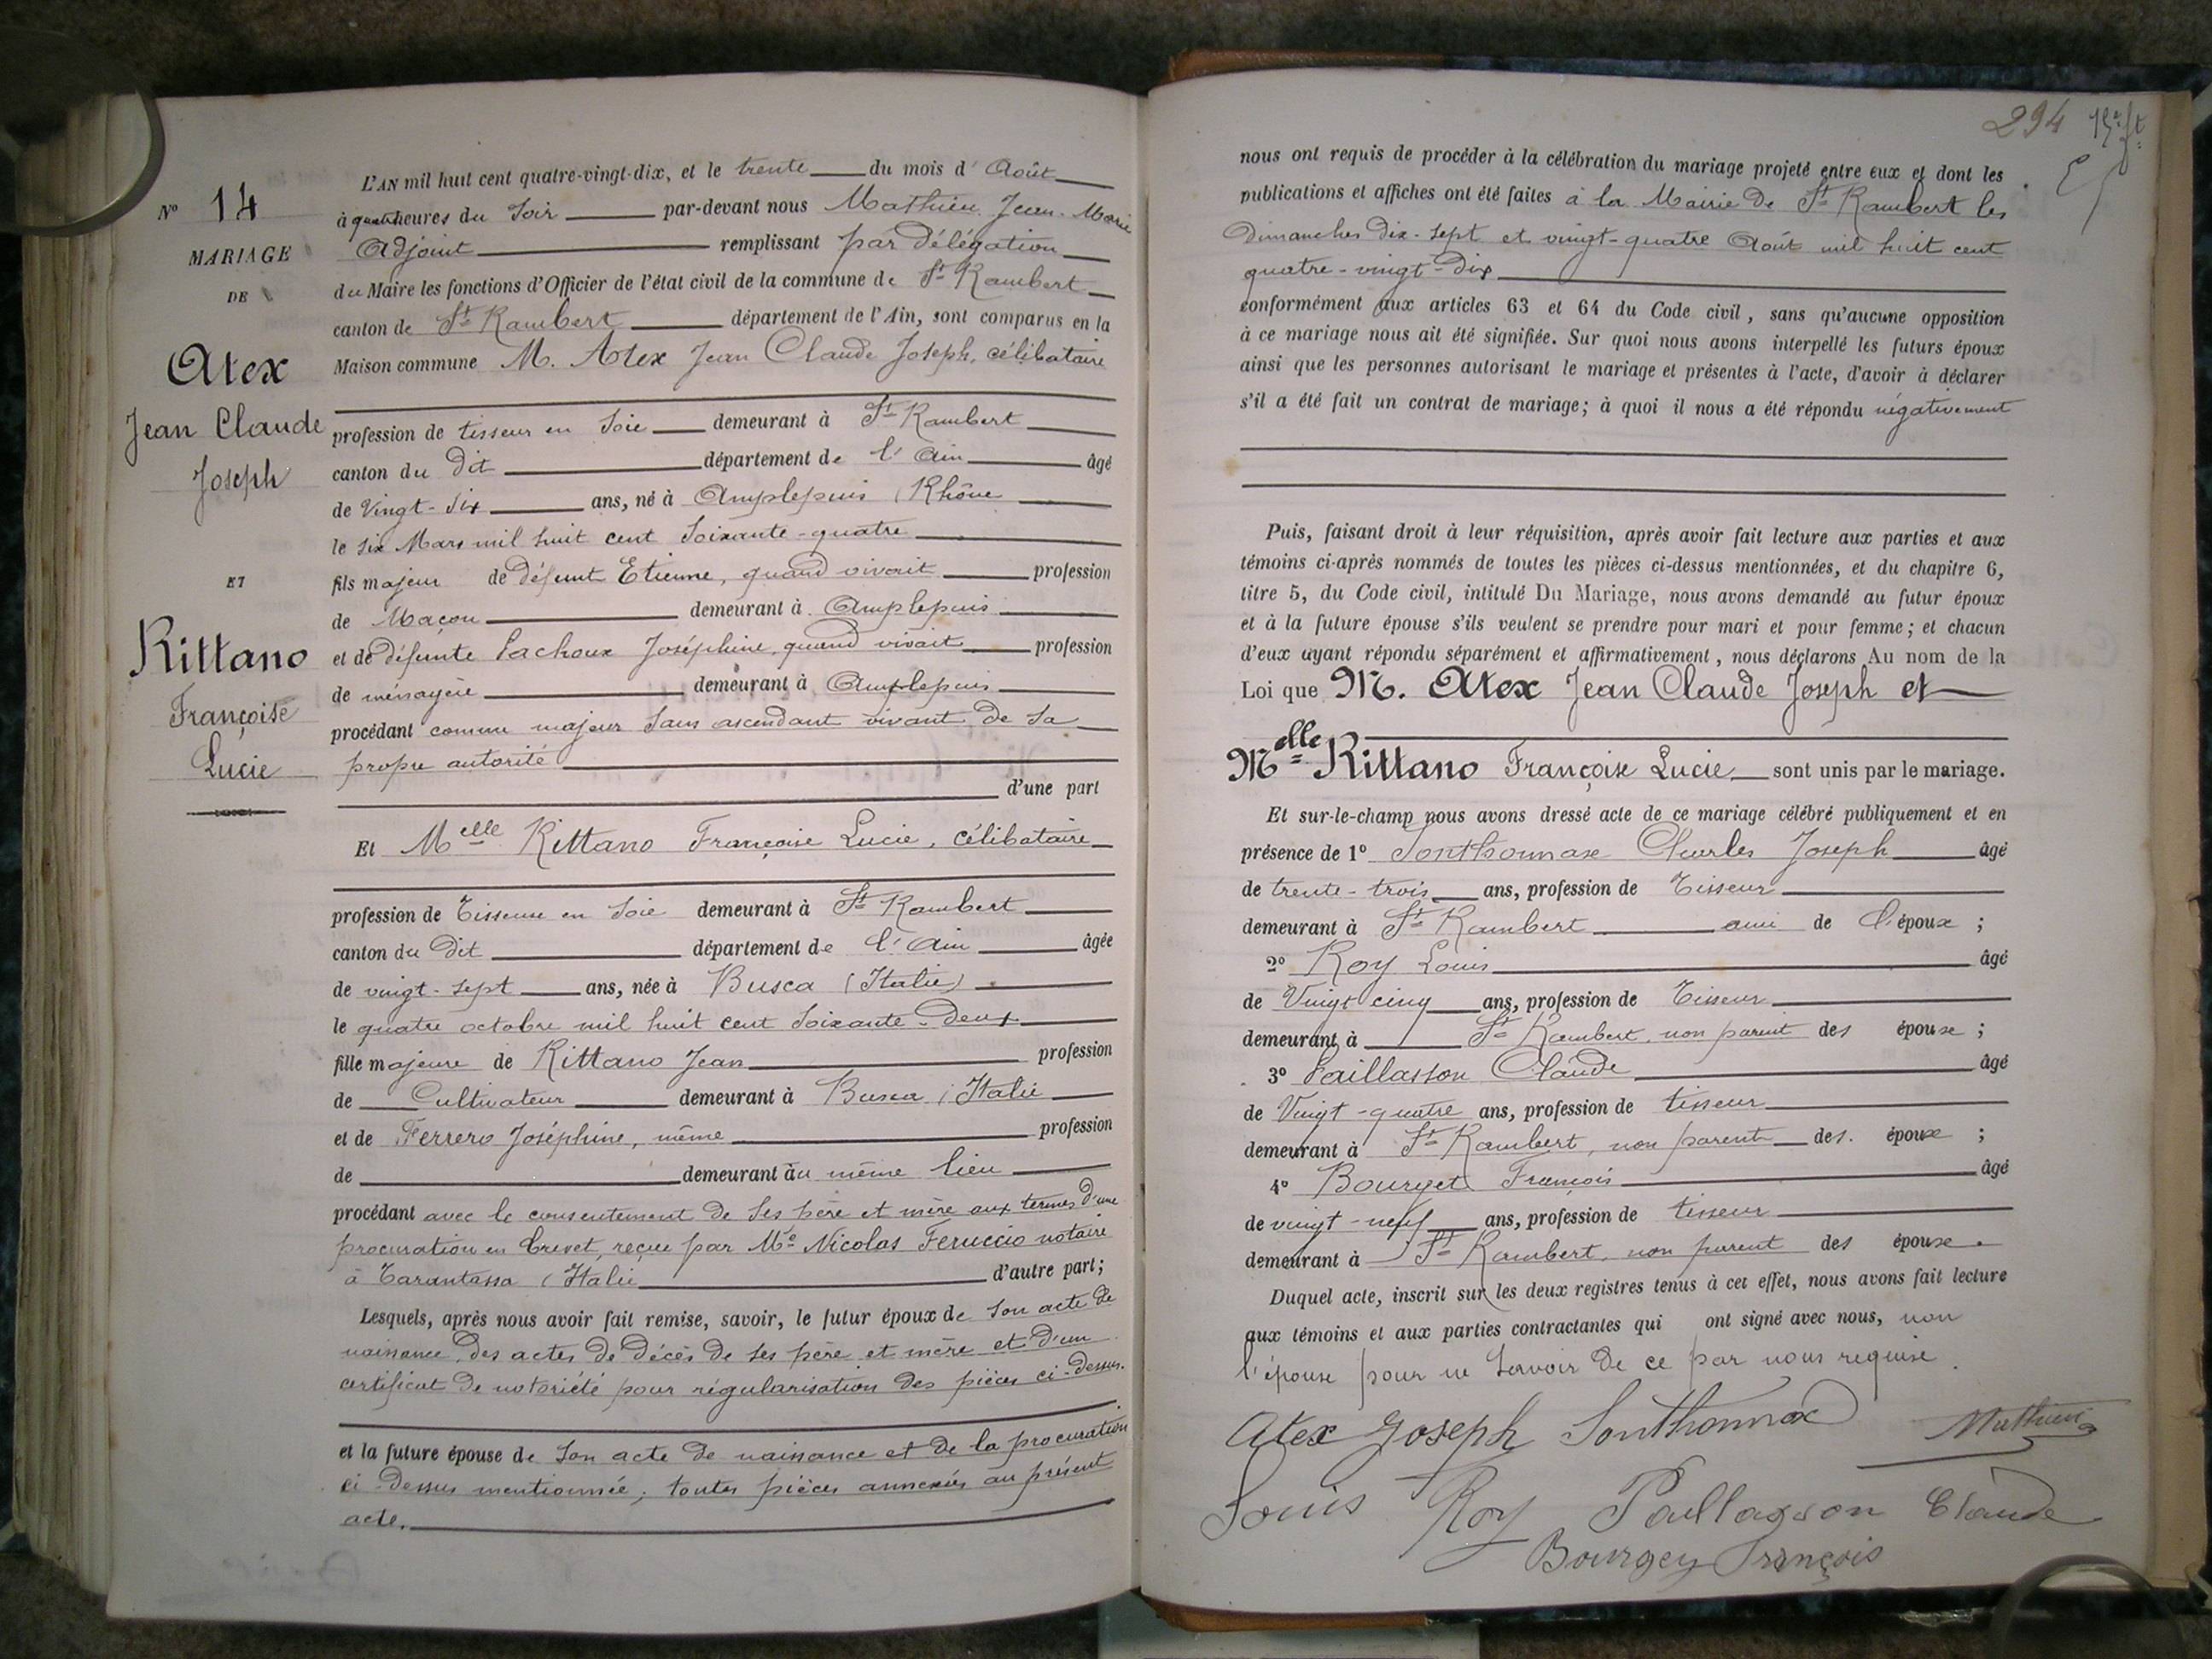 N° 14
MARIAGE
DE
Atex
Jean Claude
Joseph
ET
Rittano
Françoise
Lucie
L'AN mil huit cent quatre-vingt-dix, et le trente du mois d'Août
à quatre heures du Soir par-devant nous Mathieu Jean-Marie
Adjoint remplissant par délégation
du Maire les fonctions d'Officier de l'état civil de la commune de St Rambert
canton de St Rambert département de l'Ain, sont comparus en la
Maison commune M. Atex Jean Claude Joseph, célibataire
profession de tisseur en Soie demeurant à St Rambert
canton du dit département de l'Ain âgé
de Vingt-Six ans, né à Amplepuis (Rhône
le six Mars mil huit cent Soixante-quatre
fils majeur de défunt Etienne, quand vivait profession
de Maçon demeurant à Amplepuis
et de défunte Lachoux Joséphine, quand vivait profession
de ménagère demeurant à Amplepuis
procédant comme majeur sans ascendant vivant de sa
propre autorité
d'une part
Et Melle Rittano Françoise Lucie, célibataire
profession de Tisseuse en Soie demeurant à St Rambert
canton du dit département de l'Ain âgée
de vingt-sept ans, née à Busca (Italie)
le quatre octobre mil huit cent Soixante-deux
fille majeure de Rittano Jean profession
de Cultivateur demeurant à Busca (Italie
et de Ferrero Joséphine, même profession
de demeurant au même lieu
procédant avec le consentement de ses père et mère aux termes d'une
procuration en brevet, reçue par Me Nicolas Feruccio notaire
à Tarantassa (Italie d'autre part;
Lesquels, après nous avoir fait remise, savoir, le futur époux de Son acte de
naissance, des actes de décès de ses père et mère et d'un
certificat de notoriété pour régularisation des pièces ci-dessus.
et la future épouse de Son acte de naissance et de la procuration
ci-dessus mentionnée; toutes pièces annexées au présent
acte.
294
nous ont requis de procéder à la célébration du mariage projeté entre eux et dont les
publications et affiches ont été faites à la Mairie de St Rambert les
Dimanches dix-sept et vingt-quatre Août mil huit cent
quatre-vingt-dix
conformément aux articles 63 et 64 du Code civil, sans qu'aucune opposition
à ce mariage nous ait été signifiée. Sur quoi nous avons interpellé les futurs époux
ainsi que les personnes autorisant le mariage et présentes à l'acte, d'avoir à déclarer
s'il a été fait un contrat de mariage; à quoi il nous a été répondu négativement
Puis, faisant droit à leur réquisition, après avoir fait lecture aux parties et aux
témoins ci-après nommés de toutes les pièces ci-dessus mentionnées, et du chapitre 6,
titre 5, du Code civil, intitulé Du Mariage, nous avons demandé au futur époux
et à la future épouse s'ils veulent se prendre pour mari et pour femme; et chacun
d'eux ayant répondu séparément et affirmativement, nous déclarons Au nom de la
Loi que M. Atex Jean Claude Joseph et
Melle Rittano Françoise Lucie sont unis par le mariage.
Et sur-le-champ nous avons dressé acte de ce mariage célébré publiquement et en
présence de 1° Sonthonnax Charles Joseph âgé
de trente-trois ans, profession de Tisseur
demeurant à St Rambert ami de l'époux ;
2° Roy Louis âgé
de Vingt cinq ans, profession de Tisseur
demeurant à St Rambert, non parent des épouse ;
3° Paillasson Claude âgé
de Vingt-quatre ans, profession de tisseur
demeurant à St Rambert, non parent des époux ;
4° Bourget François âgé
de vingt-neuf ans, profession de tisseur
demeurant à St Rambert, non parent des époux.
Duquel acte, inscrit sur les deux registres tenus à cet effet, nous avons fait lecture
aux témoins et aux parties contractantes qui ont signé avec nous, non
l'épouse pour ne savoir de ce par nous requise.
Atex Joseph Sonthonnax Mathieu
Louis Roy Paillasson Claude
Bourgey François